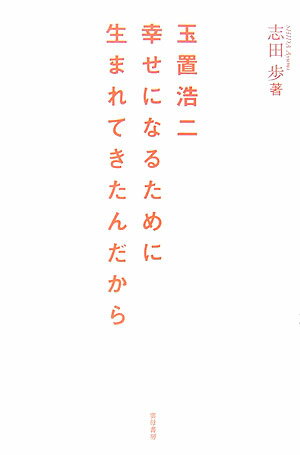 志田歩 著
SHIDA Ayumi
玉置浩二
幸せになるために
生まれてきたんだから
雲母書房